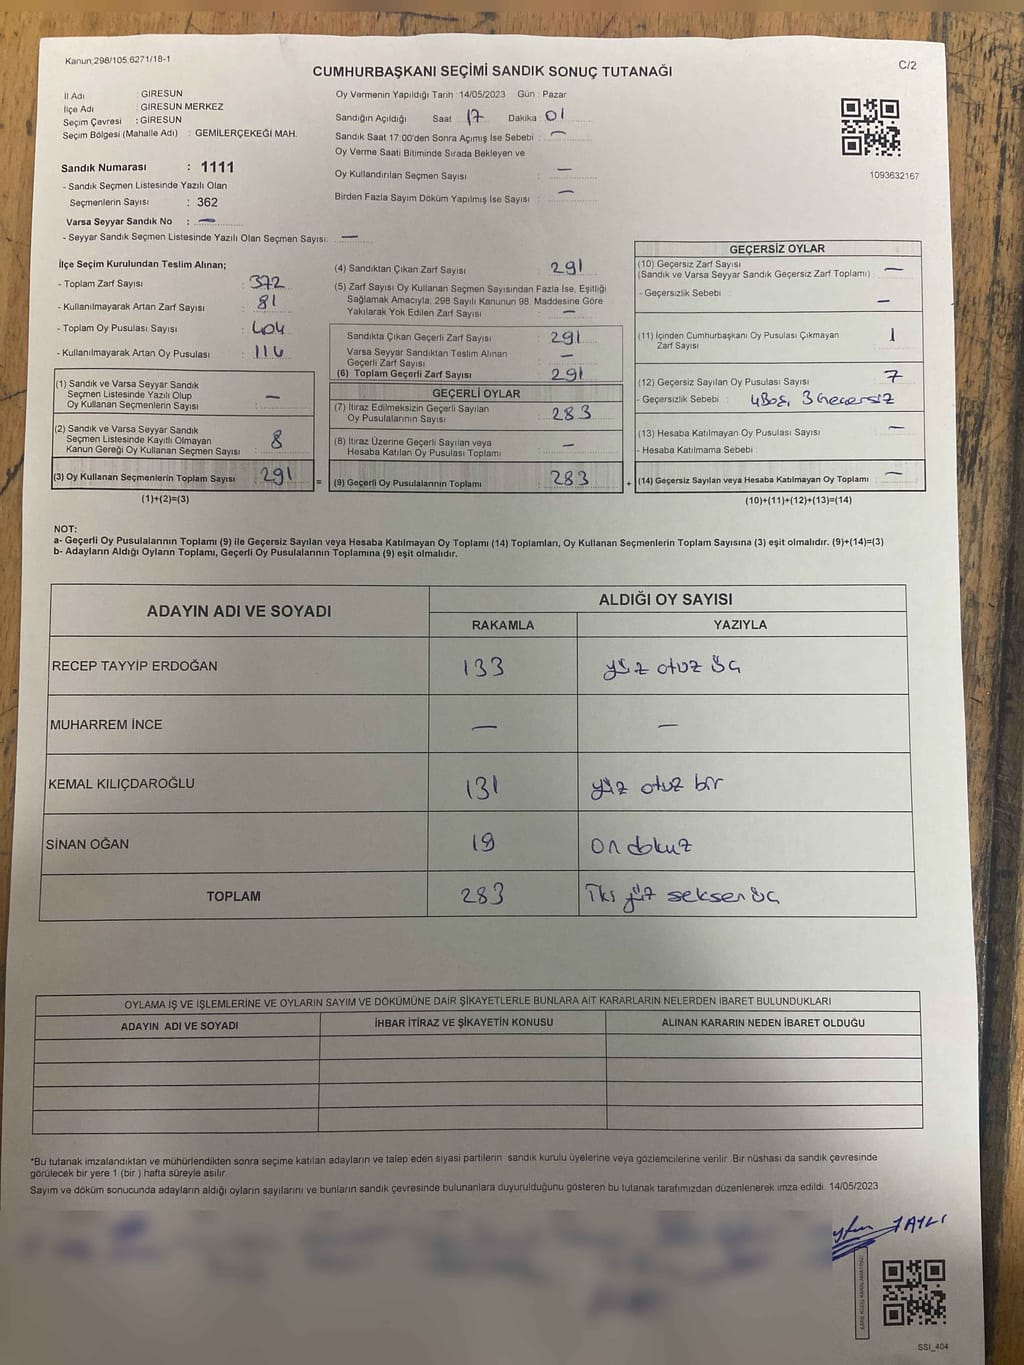 Kanun,298/105,6271/18-1
C/2
CUMHURBAŞKANI SEÇİMİ SANDIK SONUÇ TUTANAĞI
İl Adı : GİRESUN
İlçe Adı : GİRESUN MERKEZ
Seçim Çevresi : GİRESUN
Seçim Bölgesi (Mahalle Adı) : GEMİLERÇEKEĞİ MAH.
Sandık Numarası : 1111
- Sandık Seçmen Listesinde Yazılı Olan
Seçmenlerin Sayısı : 362
Varsa Seyyar Sandık No : —
- Seyyar Sandık Seçmen Listesinde Yazılı Olan Seçmen Sayısı: —
Oy Vermenin Yapıldığı Tarih : 14/05/2023 Gün : Pazar
Sandığın Açıldığı Saat 17 Dakika 01
Sandık Saat 17:00'den Sonra Açımış İse Sebebi : —
Oy Verme Saati Bitiminde Sırada Bekleyen ve
Oy Kullandırılan Seçmen Sayısı : —
Birden Fazla Sayım Döküm Yapılmış İse Sayısı : —
1093632167
İlçe Seçim Kurulundan Teslim Alınan;
- Toplam Zarf Sayısı : 372
- Kullanılmayarak Artan Zarf Sayısı : 81
- Toplam Oy Pusulası Sayısı : 404
- Kullanılmayarak Artan Oy Pusulası :
(1) Sandık ve Varsa Seyyar Sandık
Seçmen Listesinde Yazılı Olup
Oy Kullanan Seçmenlerin Sayısı : —
(2) Sandık ve Varsa Seyyar Sandık
Seçmen Listesinde Kayıtlı Olmayan
Kanun Gereği Oy Kullanan Seçmen Sayısı : 8
(3) Oy Kullanan Seçmenlerin Toplam Sayısı : 291
(1)+(2)=(3)
=
(4) Sandıktan Çıkan Zarf Sayısı : 291
(5) Zarf Sayısı Oy Kullanan Seçmen Sayısından Fazla İse, Eşitliği
Sağlamak Amacıyla; 298 Sayılı Kanunun 98. Maddesine Göre
Yakılarak Yok Edilen Zarf Sayısı : —
Sandıkta Çıkan Geçerli Zarf Sayısı : 291
Varsa Seyyar Sandıktan Teslim Alınan
Geçerli Zarf Sayısı : —
(6) Toplam Geçerli Zarf Sayısı : 291
GEÇERLİ OYLAR
(7) İtiraz Edilmeksizin Geçerli Sayılan
Oy Pusulalarının Sayısı : 283
(8) İtiraz Üzerine Geçerli Sayılan veya
Hesaba Katılan Oy Pusulası Toplamı : —
(9) Geçerli Oy Pusulalarının Toplamı : 283
+
GEÇERSİZ OYLAR
(10) Geçersiz Zarf Sayısı
(Sandık ve Varsa Seyyar Sandık Geçersiz Zarf Toplamı) : —
- Geçersizlik Sebebi : —
(11) İçinden Cumhurbaşkanı Oy Pusulası Çıkmayan
Zarf Sayısı : 1
(12) Geçersiz Sayılan Oy Pusulası Sayısı : 7
- Geçersizlik Sebebi : 4 Boş, 3 Geçersiz
(13) Hesaba Katılmayan Oy Pusulası Sayısı : —
- Hesaba Katılmama Sebebi :
(14) Geçersiz Sayılan veya Hesaba Katılmayan Oy Toplamı : —
(10)+(11)+(12)+(13)=(14)
NOT:
a- Geçerli Oy Pusulalarının Toplamı (9) ile Geçersiz Sayılan veya Hesaba Katılmayan Oy Toplamı (14) Toplamları, Oy Kullanan Seçmenlerin Toplam Sayısına (3) eşit olmalıdır. (9)+(14)=(3)
b- Adayların Aldığı Oyların Toplamı, Geçerli Oy Pusulalarının Toplamına (9) eşit olmalıdır.
ADAYIN ADI VE SOYADI ALDIĞI OY SAYISI
RAKAMLA YAZIYLA
RECEP TAYYİP ERDOĞAN 133 yüz otuz üç
MUHARREM İNCE — —
KEMAL KILIÇDAROĞLU 131 yüz otuz bir
SİNAN OĞAN 19 on dokuz
TOPLAM 283 İki yüz seksen üç
OYLAMA İŞ VE İŞLEMLERİNE VE OYLARIN SAYIM VE DÖKÜMÜNE DAİR ŞİKAYETLERLE BUNLARA AİT KARARLARIN NELERDEN İBARET BULUNDUKLARI
ADAYIN ADI VE SOYADI İHBAR İTİRAZ VE ŞİKAYETİN KONUSU ALINAN KARARIN NEDEN İBARET OLDUĞU
*Bu tutanak imzalandıktan ve mühürlendikten sonra seçime katılan adayların ve talep eden siyasi partilerin sandık kurulu üyelerine veya gözlemcilerine verilir .Bir nüshası da sandık çevresinde
görülecek bir yere 1 (bir ) hafta süreyle asılır.
Sayım ve döküm sonucunda adayların aldığı oyların sayılarını ve bunların sandık çevresinde bulunanlara duyurulduğunu gösteren bu tutanak tarafımızdan düzenlenerek imza edildi. 14/05/2023
SSI_404